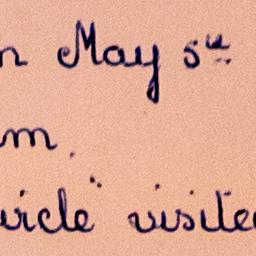 n May 5th
m.
icle" visite